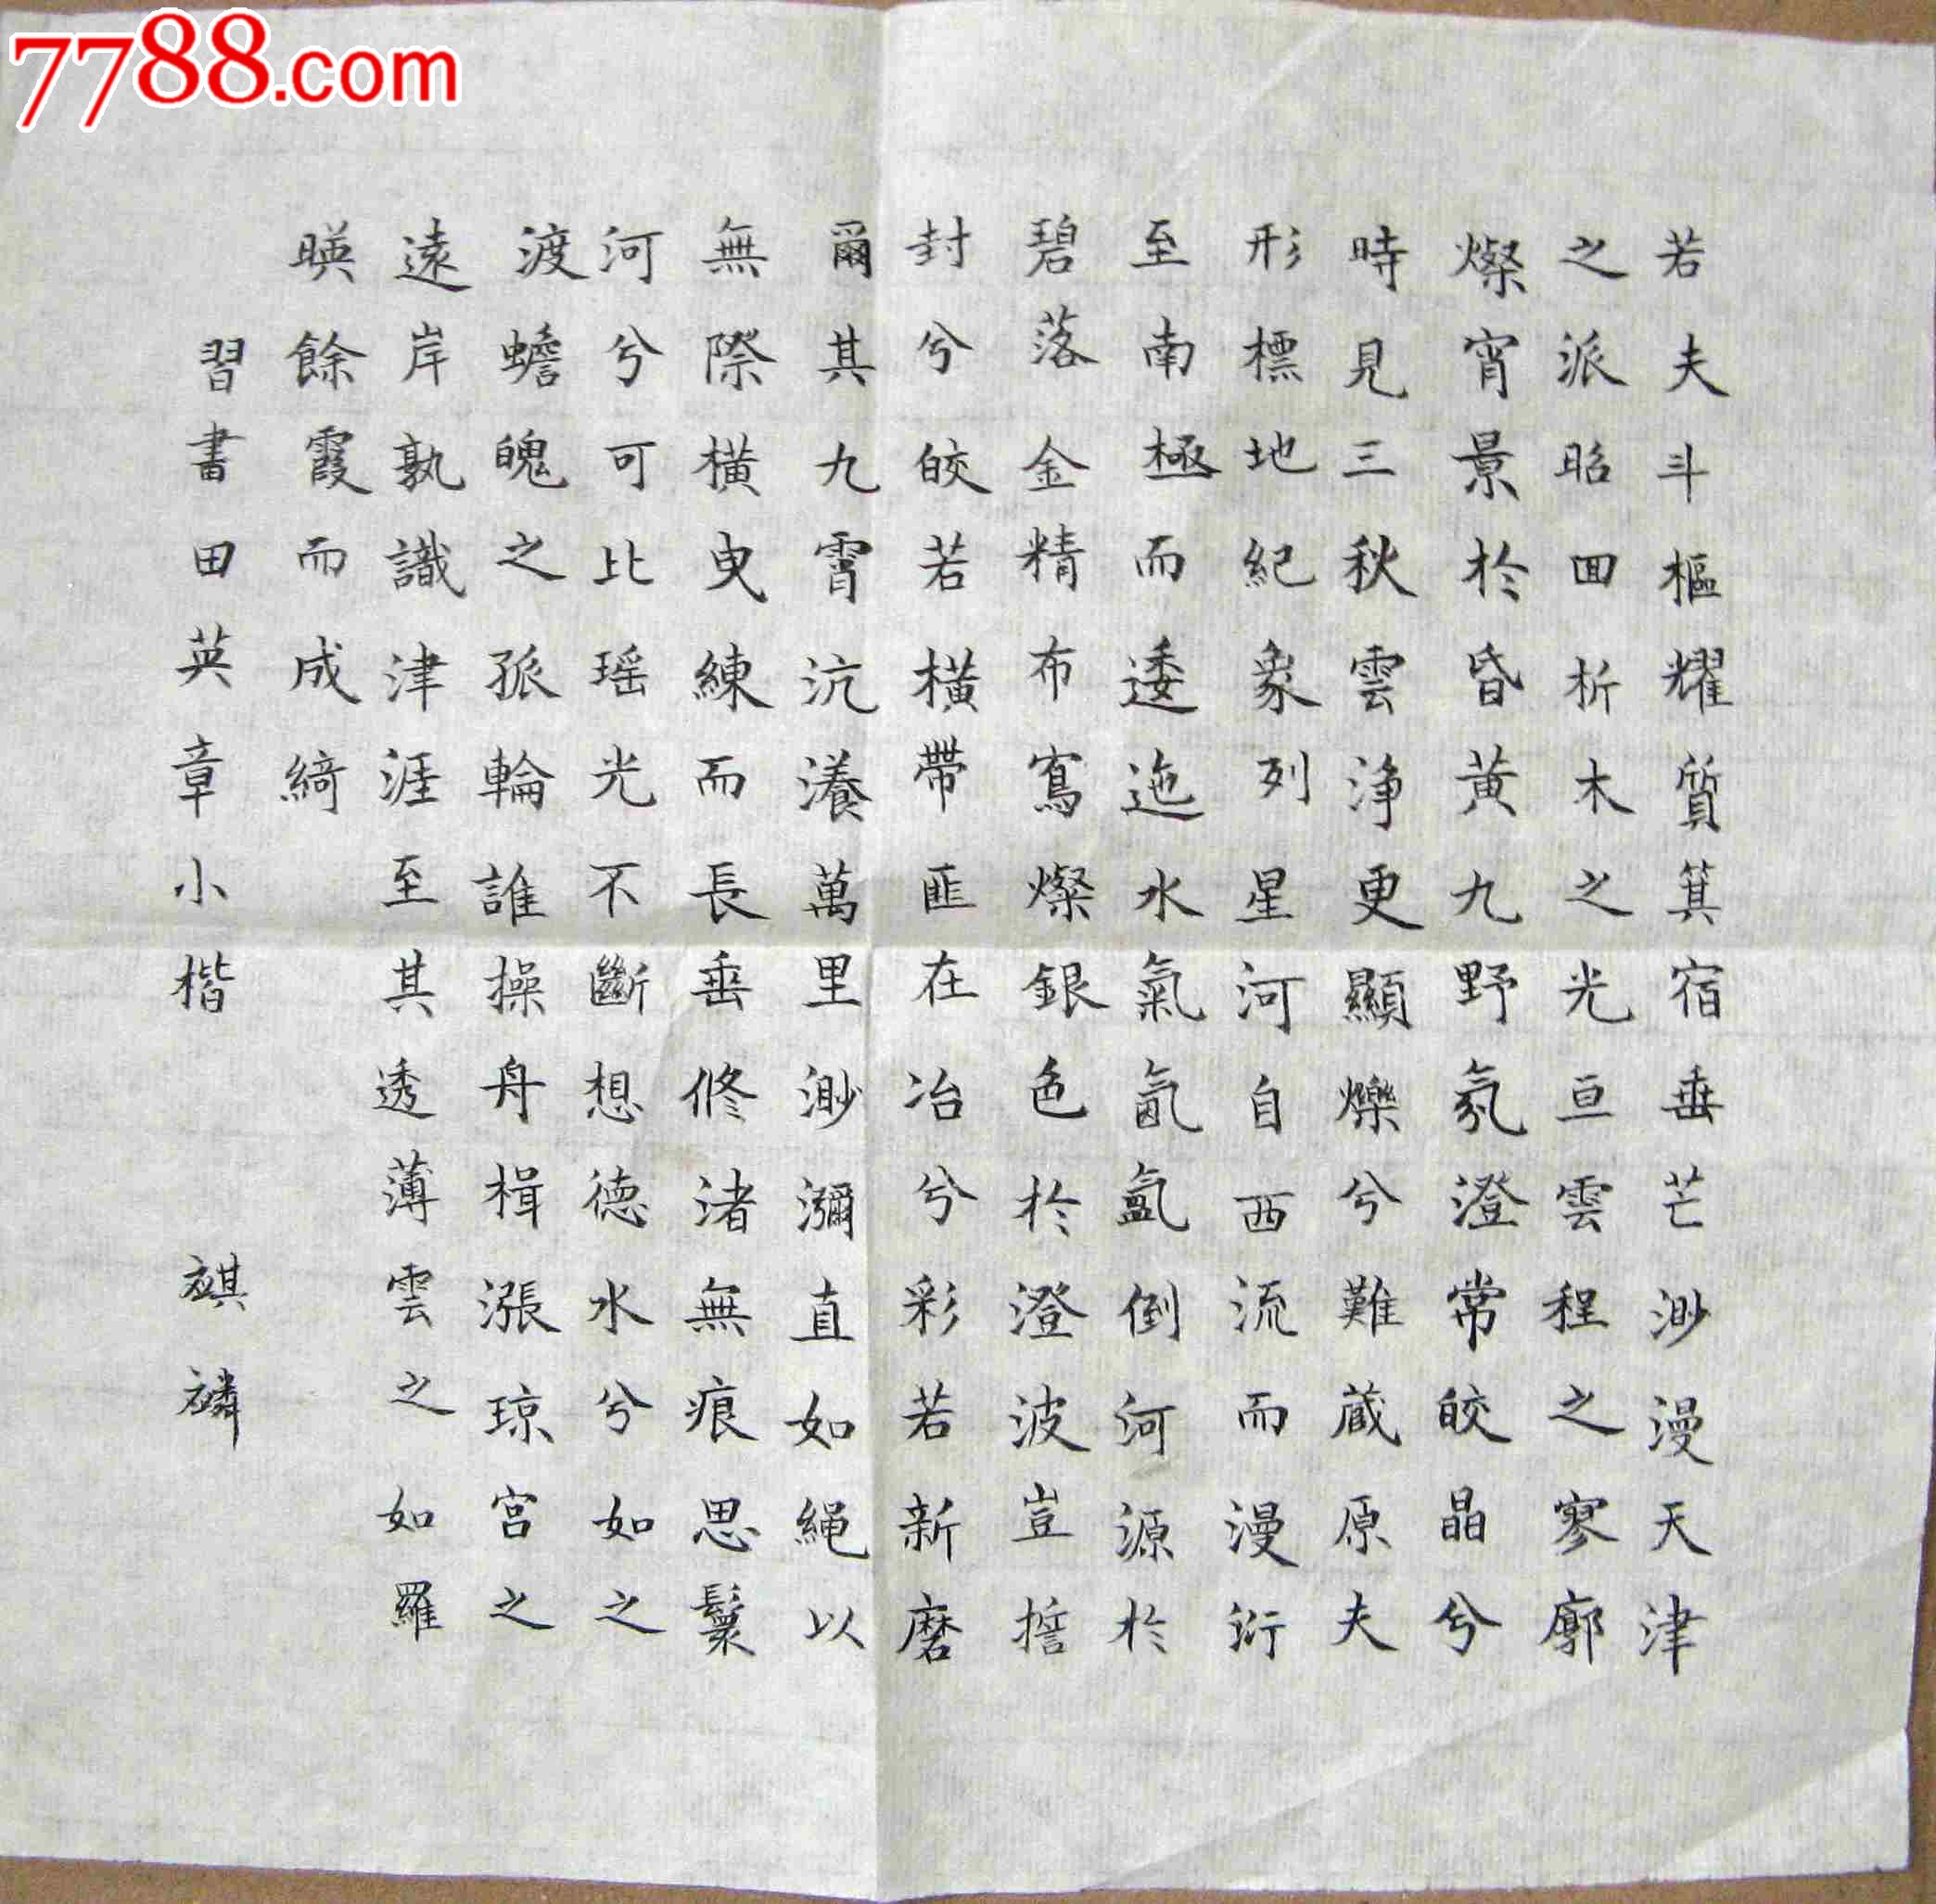 7788.com
若夫斗樞耀質箕宿垂芒渺漫天津
之派昭回析木之光亘雲程之寥廓
燦宵景於昏黃九野氛澄常皎晶兮
時見三秋雲淨更顯爍兮難蔵原夫
形標地紀象列星河自西流而漫衍
至南極而逶迤水氣氤氳倒河源於
碧落金精布寫燦銀色於澄波豈擔
封兮皎若橫帶匪在冶兮彩若新磨
爾其九霄沆瀁萬里渺瀰直如繩以
無際橫曳練而長垂修渚無痕思鬟
河兮可比瑶光不斷想德水兮如之
渡蟾魄之孤輪誰操舟楫漲琼宫之
遠岸孰識津涯至其透薄雲之如羅
暎餘霞而成綺
習書田英章小楷 祺禷